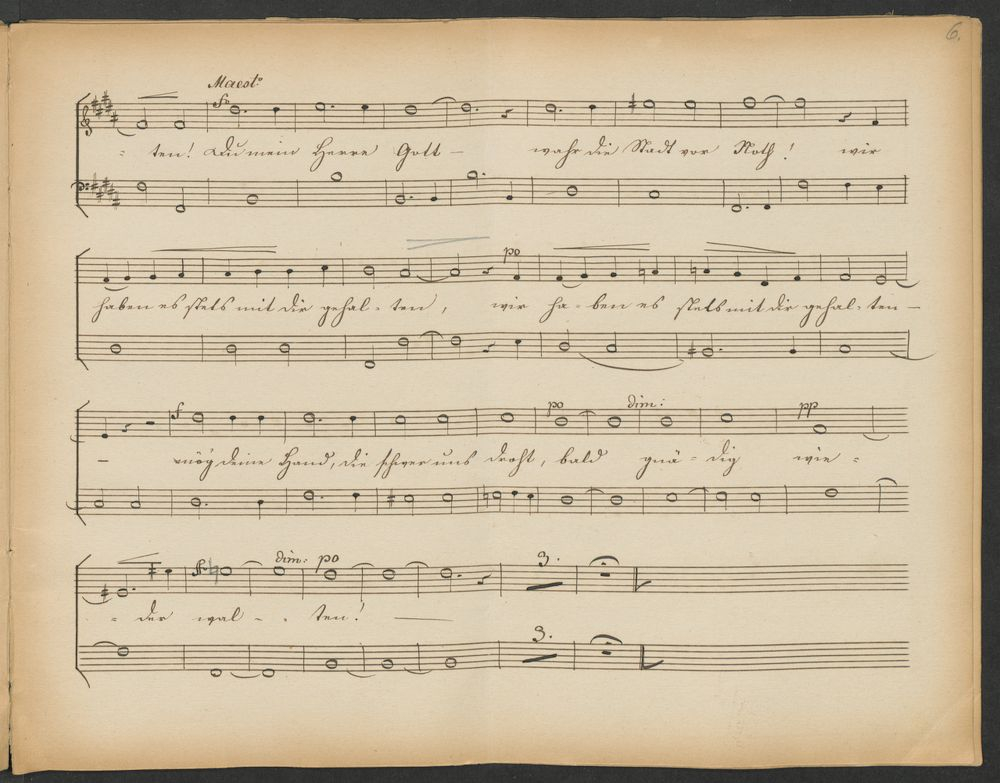 6.
Maest:o
fo
= ten! Du mein Herre Gott — wahr die Stadt vor Noth! wir
po
haben es stets mit dir gehal = ten, wir ha = ben es stets mit dir gehal = ten —
f po dim: pp
— mög deine Hand, die schwer uns droht, bald gnä = dig wie =
dim: po 3.
= der wal = = ten! —
3.